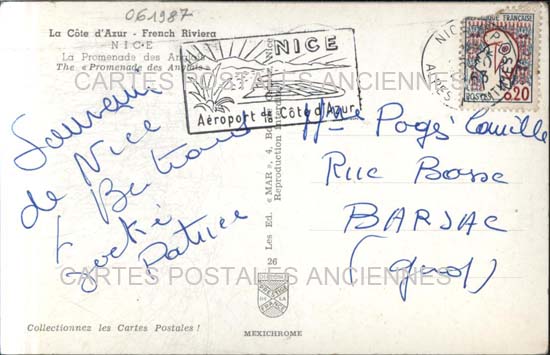 061987
La Côte d'Azur - French Riviera
NICE
La Promenade des Anglais
The « Promenade des Anglais »
NICE
Aéroport de la Côte d'Azur
POSTES 0,20
CARTES POSTALES ANCIENNES
Souvenir
de Nice
Bertrand
Patrice
Les Ed. « MAR », 4, Nice
Reproduction
26
Mme Pogés Camille
Rue Basse
BARJAC
(Gard)
CARTES POSTALES ANCIENNES
Collectionnez les Cartes Postales !
MEXICHROME